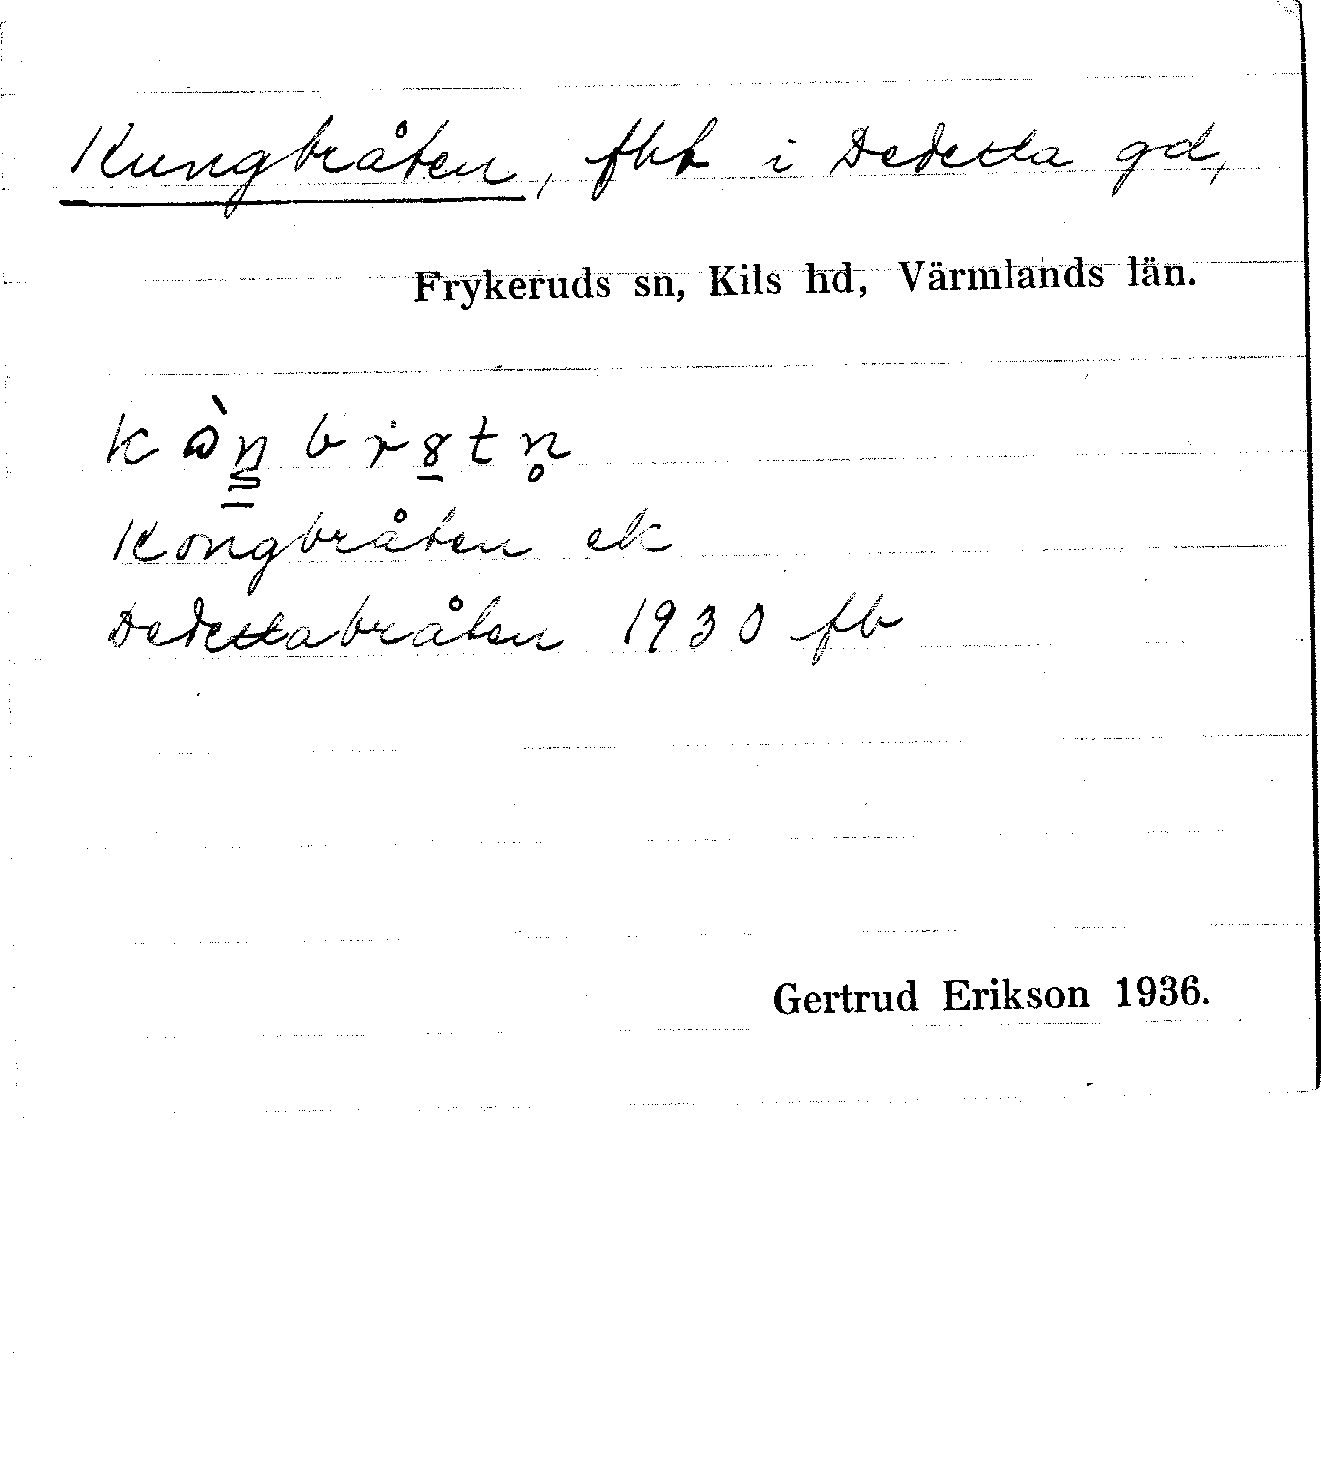 Kungbråten, fht i Dedetta gd,
Frykeruds sn, Kils hd, Värmlands län.
Kongbråten ek
Dedettabråten 1930 fb
Gertrud Erikson 1936.